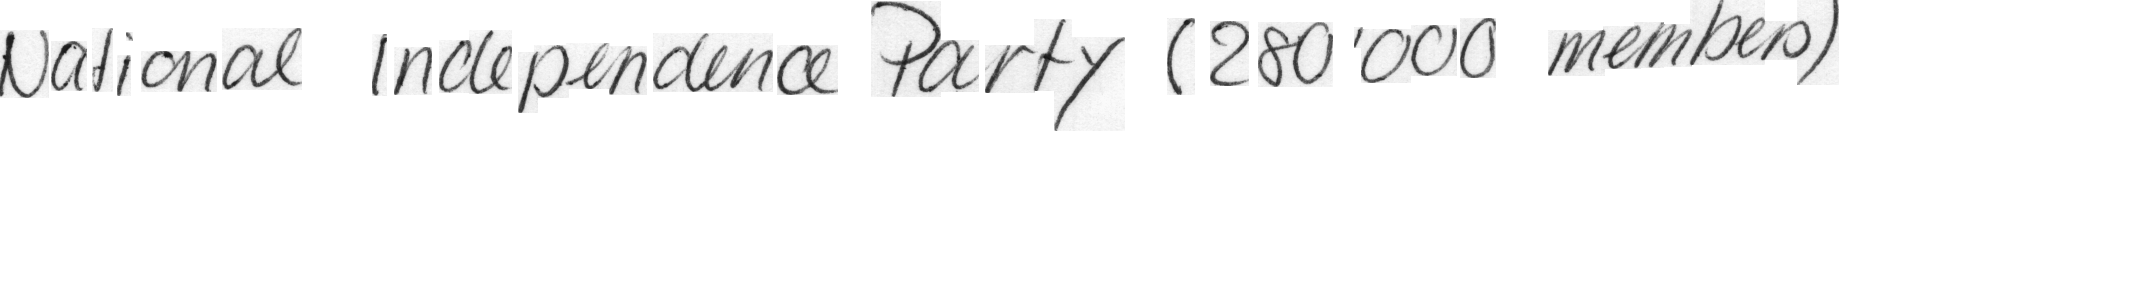 National Independence Party (280'000 members)